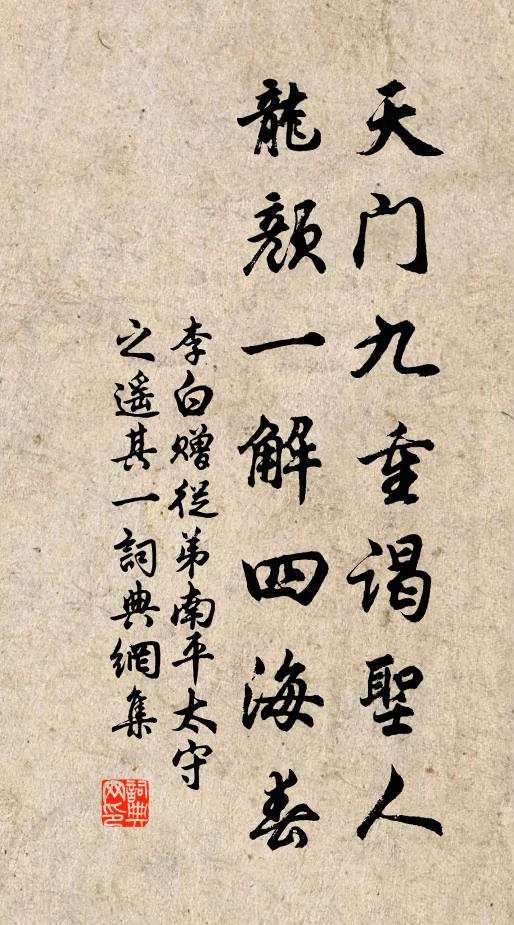 天门九重谒聖人
龍顔一解四海春
李白赠從弟南平太守
之遥其一詞典網集
詞典
网印